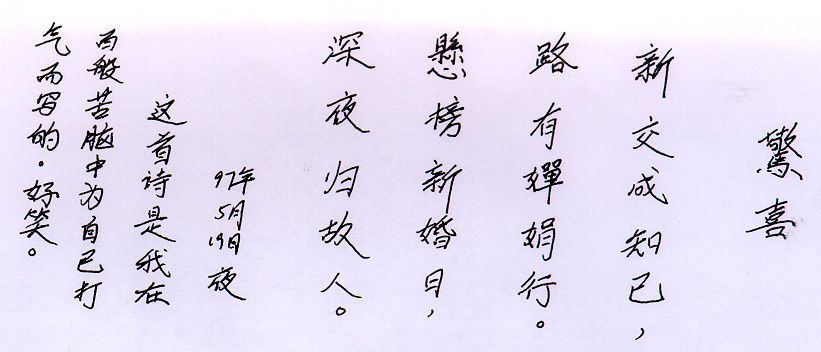 驚喜
新交成知己，
路有嬋娟行。
懸榜新婚日，
深夜归故人。
97年
5月
19日
夜
这首诗是我在
百般苦脑中为自己打
气而写的。好笑。